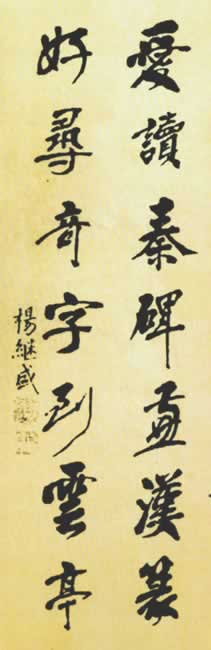 愛讀秦碑漢篆
好尋奇字到雲亭
楊継盛